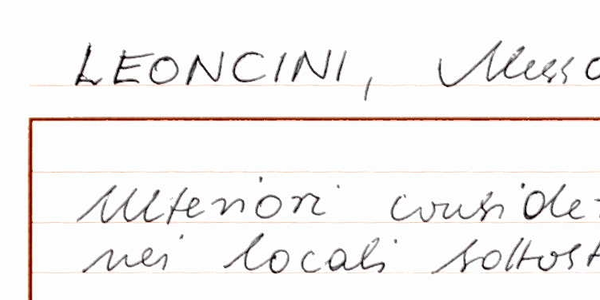 LEONCINI, Messo
Ulteriori conside
nei locali sottost